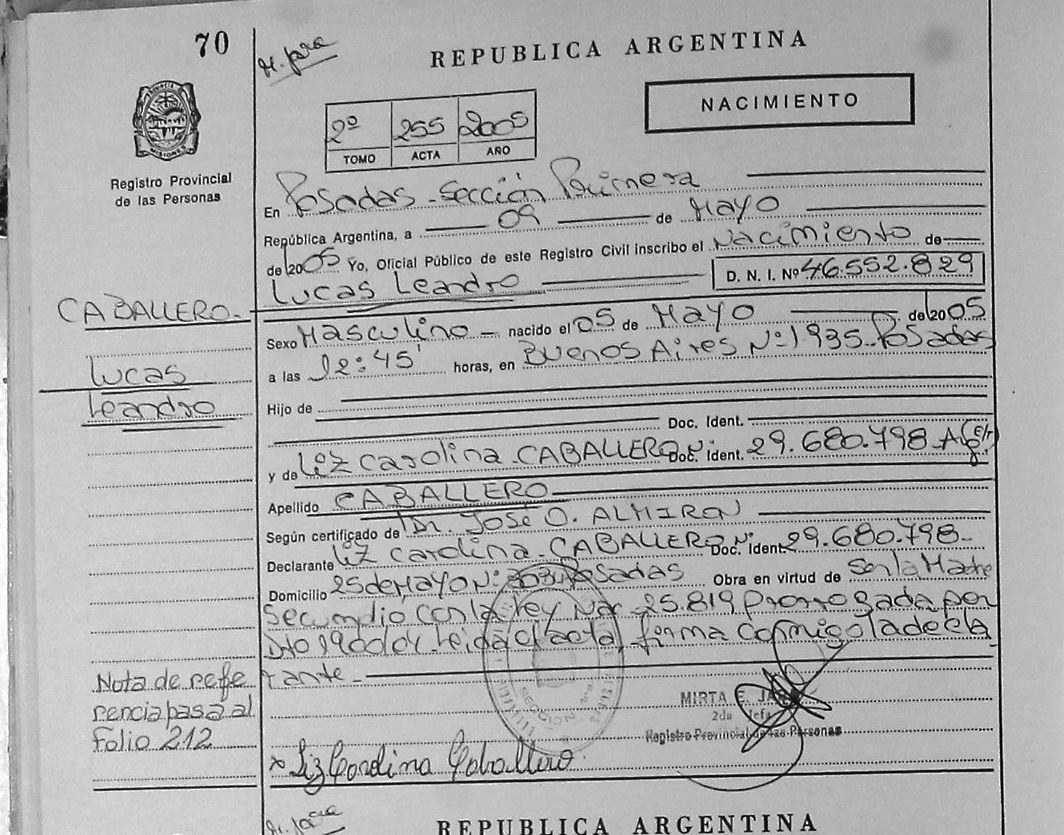 70
H. para
REPUBLICA ARGENTINA
NACIMIENTO
2º 255 2005
TOMO ACTA AÑO
Registro Provincial
de las Personas
En Posadas - Sección Primera
República Argentina, a 09 de Mayo
de 2005 Yo, Oficial Público de este Registro Civil inscribo el Nacimiento de
Lucas Leandro D. N. I. Nº 46.552.829
CABALLERO.-
Lucas
Leandro
Sexo Masculino - nacido el 05 de Mayo de 2005
a las 12:45' horas, en Buenos Aires Nº 1935 - Posadas
Hijo de
Doc. Ident.
y de Liz Carolina CABALLERO Doc. Ident. 29.680.798
Apellido CABALLERO
Según certificado de Dr. José O. ALMIRON
Declarante Liz Carolina - CABALLERO Doc. Ident 29.680.798-
Domicilio 25 de Mayo Nº Posadas Obra en virtud de Ser la Madre
con la Ley Nac 25.819 Prorrogada por
Dto Leida el acta, firma conmigo la decla
rante -
Nota de refe
rencia pasa al
Folio 212
MIRTA E.
2da Jefa
Registro Provincial de las Personas
x Liz Carolina Caballero
REPUBLICA ARGENTINA